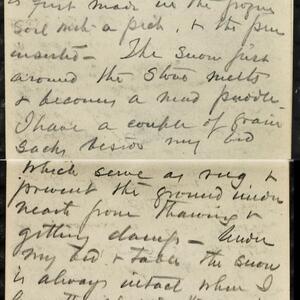 is first made in the frozen
soil with a pick, & the pin
inserted — The snow just
around the stove melts
& becomes a mud puddle.
I have a couple of grain
sacks beside my bed
which serve as rug &
prevent the ground under
neath from thawing &
getting damp — Under
my bed & table the snow
is always intact when I